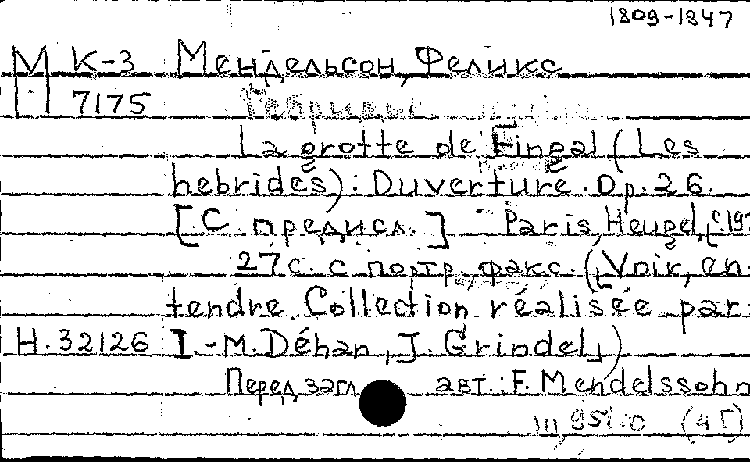 1809-1847
М К-3 Мендельсон, Феликс
7175
La grotte de Fingal (Les
hebrides): Ouverture. Op. 26.
[С предисл.] Paris, Heugel, [с.197
27 с. с портр., факс. (Voir, en-
tendre. Collection réalisée par
Н.32126 I.-M. Déhan, J. Grindel)
Перед загл. авт.: F. Mendelssohn